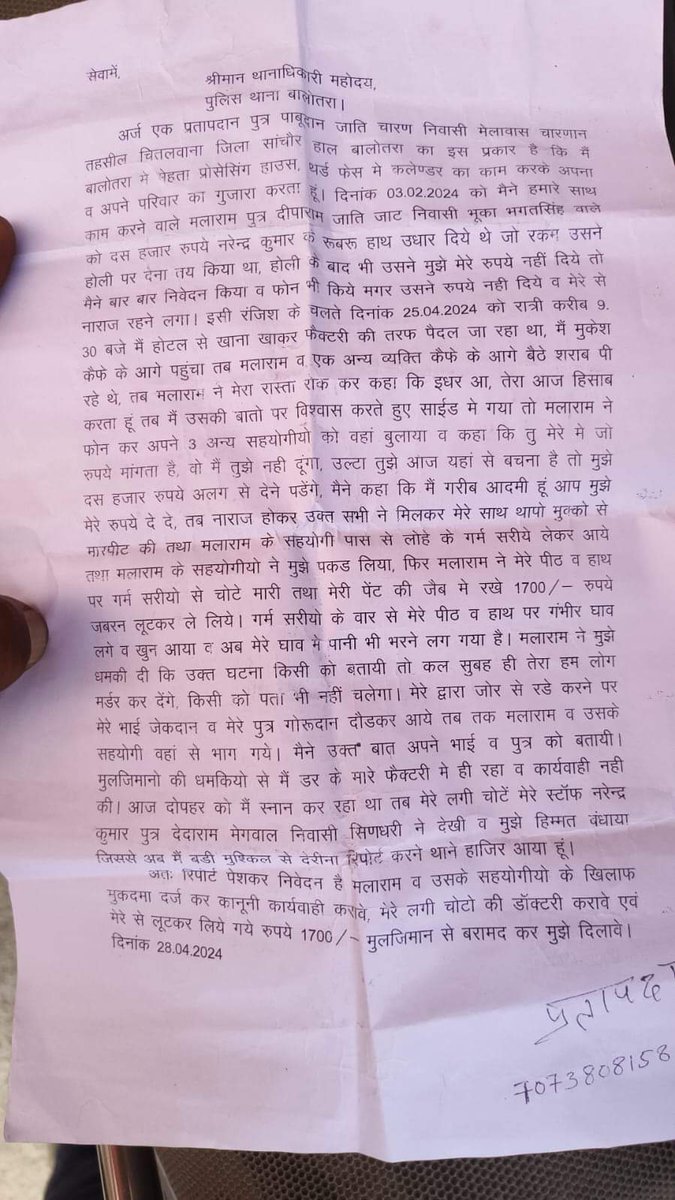 सेवामें,
श्रीमान थानाधिकारी महोदय,
पुलिस थाना बालोतरा।
अर्ज एक प्रतापदान पुत्र पाबूदान जाति चारण निवासी मेलावास चारणान
तहसील चितलवाना जिला सांचौर हाल बालोतरा का इस प्रकार है कि मैं
बालोतरा मे मेहता प्रोसेसिंग हाउस, थर्ड फेस मे कलेण्डर का काम करके अपना
व अपने परिवार का गुजारा करता हूं। दिनांक 03.02.2024 को मैने हमारे साथ
काम करने वाले मलाराम पुत्र दीपाराम जाति जाट निवासी भूका भगतसिंह वाले
को दस हजार रुपये नरेन्द्र कुमार के रूबरू हाथ उधार दिये थे जो रकम उसने
होली पर देना तय किया था, होली के बाद भी उसने मुझे मेरे रुपये नहीं दिये तो
मैने बार बार निवेदन किया व फोन भी किये मगर उसने रुपये नही दिये व मेरे से
नाराज रहने लगा। इसी रंजिश के चलते दिनांक 25.04.2024 को रात्री करीब 9.
30 बजे मैं होटल से खाना खाकर फैक्टरी की तरफ पैदल जा रहा था, मैं मुकेश
कैफे के आगे पहुंचा तब मलाराम व एक अन्य व्यक्ति कैफे के आगे बैठे शराब पी
रहे थे, तब मलाराम ने मेरा रास्ता रोक कर कहा कि इधर आ, तेरा आज हिसाब
करता हूं तब मैं उसकी बातो पर विश्वास करते हुए साईड मे गया तो मलाराम ने
फोन कर अपने 3 अन्य सहयोगीयो को वहां बुलाया व कहा कि तु मेरे मे जो
रुपये मांगता है, वो मैं तुझे नही दूंगा, उल्टा तुझे आज यहां से बचना है तो मुझे
दस हजार रुपये अलग से देने पडेंगे, मैने कहा कि मैं गरीब आदमी हूं आप मुझे
मेरे रुपये दे दे, तब नाराज होकर उक्त सभी ने मिलकर मेरे साथ थापो मुक्को से
मारपीट की तथा मलाराम के सहयोगी पास से लोहे के गर्म सरीये लेकर आये
तथा मलाराम के सहयोगीयो ने मुझे पकड लिया, फिर मलाराम ने मेरे पीठ व हाथ
पर गर्म सरीयो से चोटे मारी तथा मेरी पेंट की जेब मे रखे 1700/- रुपये
जबरन लूटकर ले लिये। गर्म सरीयो के वार से मेरे पीठ व हाथ पर गंभीर घाव
लगे व खुन आया व अब मेरे घाव मे पानी भी भरने लग गया है। मलाराम ने मुझे
धमकी दी कि उक्त घटना किसी को बतायी तो कल सुबह ही तेरा हम लोग
मर्डर कर देंगे, किसी को पता भी नहीं चलेगा। मेरे द्वारा जोर से रडे करने पर
मेरे भाई जेकदान व मेरे पुत्र गोरूदान दौडकर आये तब तक मलाराम व उसके
सहयोगी वहां से भाग गये। मैने उक्त बात अपने भाई व पुत्र को बतायी।
मुलजिमानो की धमकियो से मैं डर के मारे फैक्टरी मे ही रहा व कार्यवाही नही
की। आज दोपहर को मैं स्नान कर रहा था तब मेरे लगी चोटें मेरे स्टॉफ नरेन्द्र
कुमार पुत्र देदाराम मेगवाल निवासी सिणधरी ने देखी व मुझे हिम्मत बंधाया
जिससे अब मैं बडी मुश्किल से देरीना रिपोर्ट करने थाने हाजिर आया हूं।
अतः रिपोर्ट पेशकर निवेदन है मलाराम व उसके सहयोगीयो के खिलाफ
मुकदमा दर्ज कर कानूनी कार्यवाही करावे, मेरे लगी चोटो की डॉक्टरी करावे एवं
मेरे से लूटकर लिये गये रुपये 1700/- मुलजिमान से बरामद कर मुझे दिलावे।
दिनांक 28.04.2024
7073808158